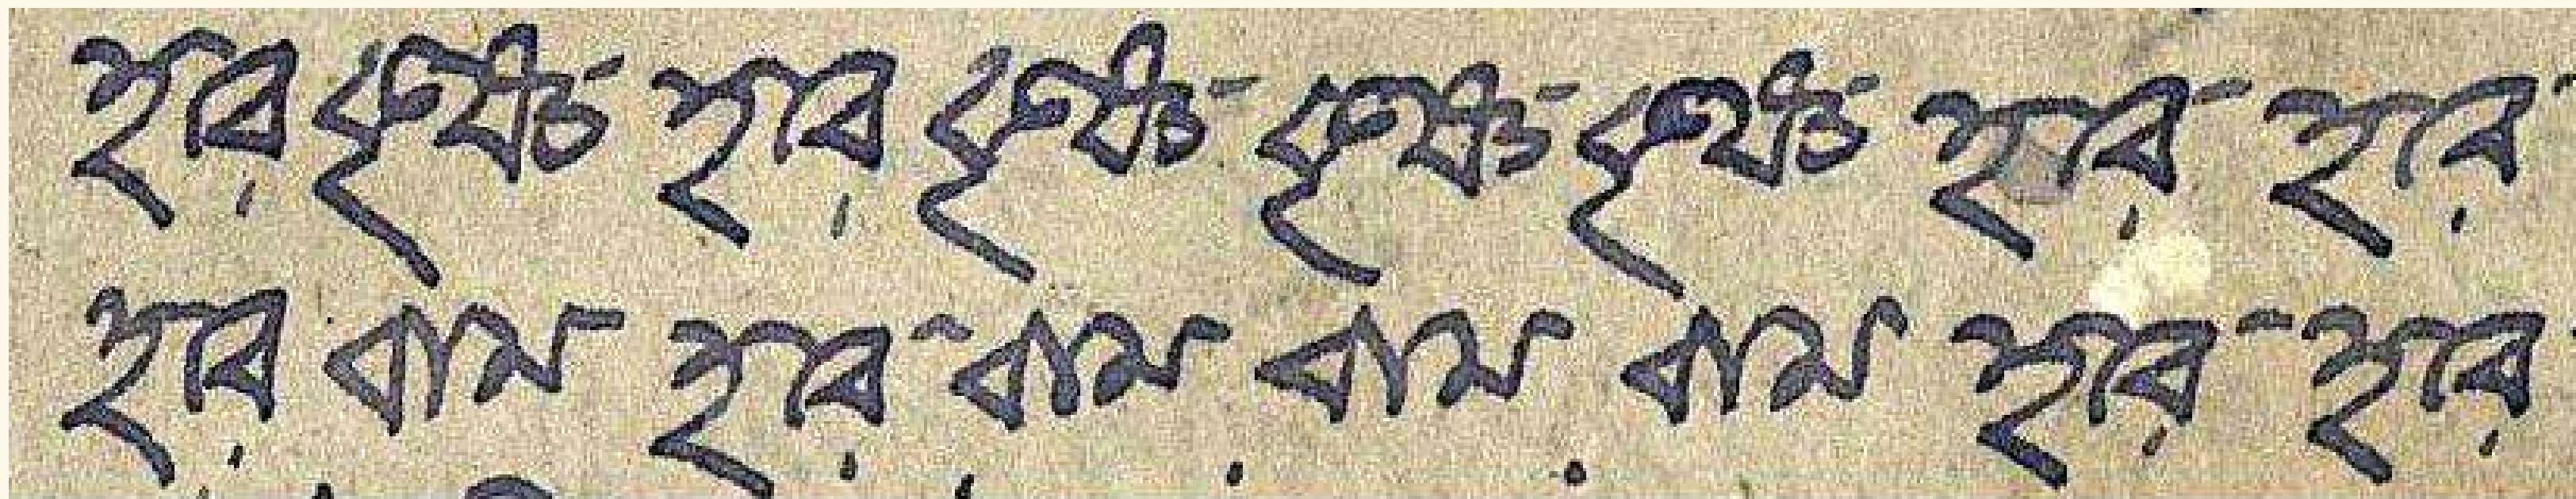 হরে কৃষ্ণ হরে কৃষ্ণ কৃষ্ণ কৃষ্ণ হরে হরে
হরে রাম হরে রাম রাম রাম হরে হরে